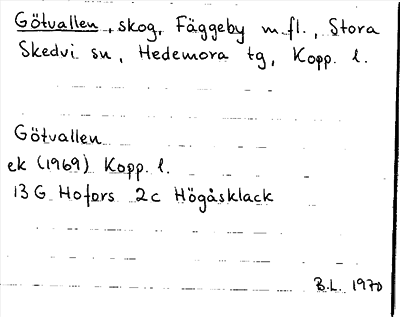 Götvallen, skog, Fäggeby m.fl., Stora
Skedvi sn, Hedemora tg, Kopp. l.
Götvallen
ek (1969) Kopp. l.
13 G Hofors 2c Högåsklack
B.L. 1970